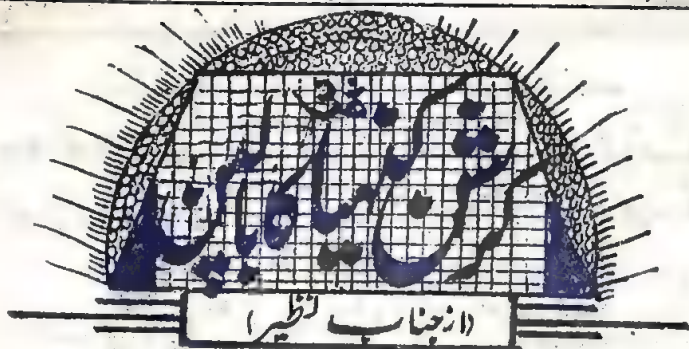 کرشن کنہیا کا بالپن
(از جناب نظیر)